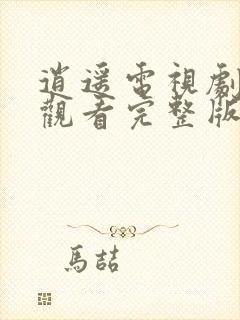 逍遥電視劇
觀看完整版
馬喆